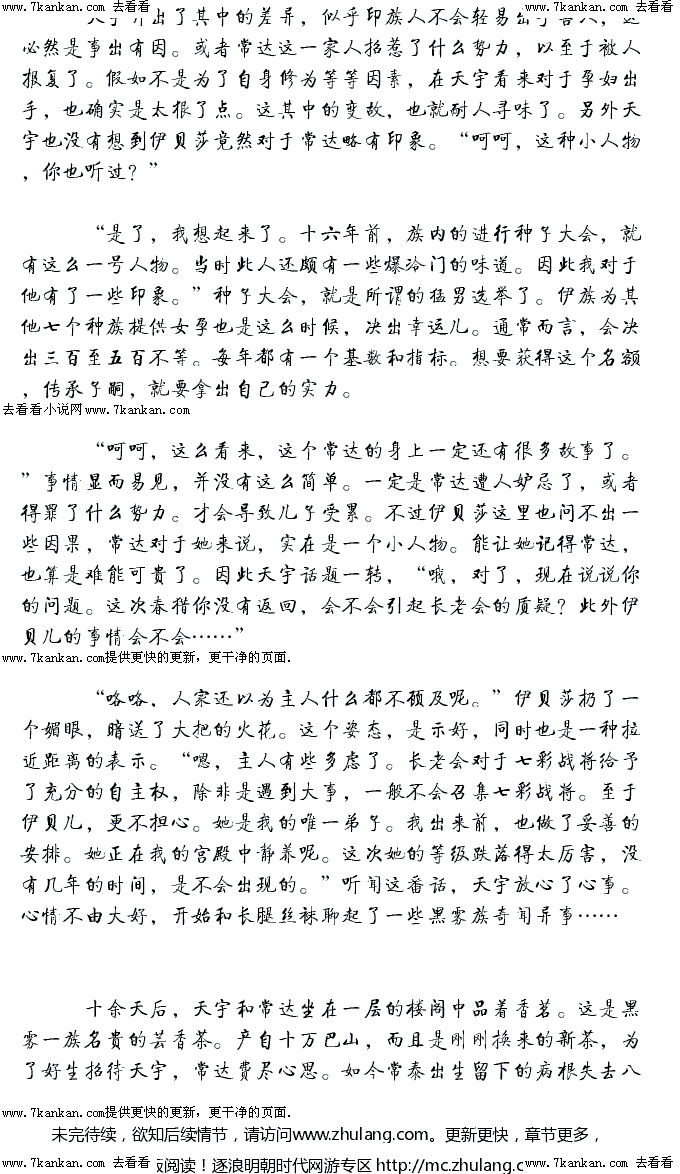 www.7kankan.com 去看看 www.7kankan.com 去看看
出了其中的差异，似乎印族人不会轻易出手
必然是事出有因。或者常达这一家人招惹了什么势力，以至于被人
报复了。假如不是为了自身修为等等因素，在天宇看来对于孕妇出
手，也确实是太狠了点。这其中的变故，也就耐人寻味了。另外天
宇也没有想到伊贝莎竟然对于常达略有印象。“呵呵，这种小人物
，你也听过？”
“是了，我想起来了。十六年前，族内的进行种子大会，就
有这么一号人物。当时此人还颇有一些爆冷门的味道。因此我对于
他有了一些印象。”种子大会，就是所谓的猛男选举了。伊族为其
他七个种族提供女孕也是这么时候，决出幸运儿。通常而言，会决
出三百至五百不等。每年都有一个基数和指标。想要获得这个名额
，传承子嗣，就要拿出自己的实力。
去看看小说网www.7kankan.com
“呵呵，这么看来，这个常达的身上一定还有很多故事了。
”事情显而易见，并没有这么简单。一定是常达遭人妒忌了，或者
得罪了什么势力。才会导致儿子受累。不过伊贝莎这里也问不出一
些因果，常达对于她来说，实在是一个小人物。能让她记得常达，
也算是难能可贵了。因此天宇话题一转，“哦，对了，现在说说你
的问题。这次春猎你没有返回，会不会引起长老会的质疑？此外伊
贝儿的事情会不会……”
www.7kankan.com提供更快的更新，更干净的页面.
“咯咯，人家还以为主人什么都不顾及呢。”伊贝莎扔了一
个媚眼，暗送了大把的火花。这个姿态，是示好，同时也是一种拉
近距离的表示。“嗯，主人有些多虑了。长老会对于七彩战将给予
了充分的自主权，除非是遇到大事，一般不会召集七彩战将。至于
伊贝儿，更不担心。她是我的唯一弟子。我出来前，也做了妥善的
安排。她正在我的宫殿中静养呢。这次她的等级跌落得太厉害，没
有几年的时间，是不会出现的。”听闻这番话，天宇放心了心事。
心情不由大好，开始和长腿丝袜聊起了一些黑雾族奇闻异事……
十余天后，天宇和常达坐在一层的楼阁中品着香茗。这是黑
雾一族名贵的芸香茶。产自十万巴山，而且是刚刚换来的新茶，为
了好生招待天宇，常达费尽心思。如今常泰出生留下的病根失去八
www.7kankan.com提供更快的更新，更干净的页面.
未完待续，欲知后续情节，请访问www.zhulang.com。更新更快，章节更多，
www.7kankan.com 去看看 双阅读！逐浪明朝时代网游专区 http://mc.zhulang.co www.7kankan.com 去看看